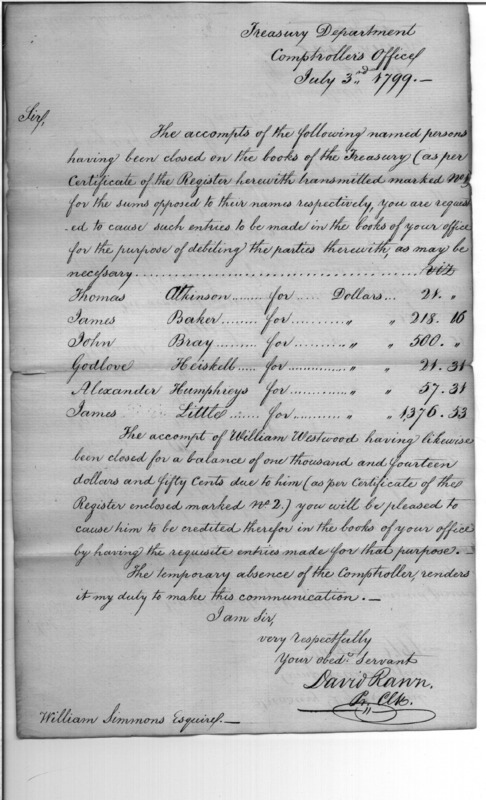 Treasury Department
Comptrollers Office
July 3rd 1799.—
Sir,
The accompts of the following named persons
having been closed on the books of the Treasury (as per
Certificate of the Register herewith transmitted marked No. 1)
for the sums opposed to their names respectively, you are request
-ed to cause such entries to be made in the books of your office
for the purpose of debiting the parties therewith, as may be
necessary.................................................viz
Thomas Atkinson........for......Dollars... 21. "
James Baker.........for........ " " 218. 16
John Bray.........for........ " " 500. "
Godlove Heiskell.....for............... " 21. 31
Alexander Humphreys......for........ " " 57. 31
James Little.......for........ " " 1,376. 53
The accompt of William Westwood having likewise
been closed for a balance of one thousand and fourteen
dollars and fifty Cents due to him (as per Certificate of the
Register enclosed marked No 2.) you will be pleased to
cause him to be credited therefor in the books of your office
by having the requisite entries made for that purpose.—
The temporary absence of the Comptroller, renders
it my duty to make this communication.—
I am Sir,
very respectfully
Your obedt. Servant
David Rawn.
Pr. Clk.
William Simmons Esquire.—